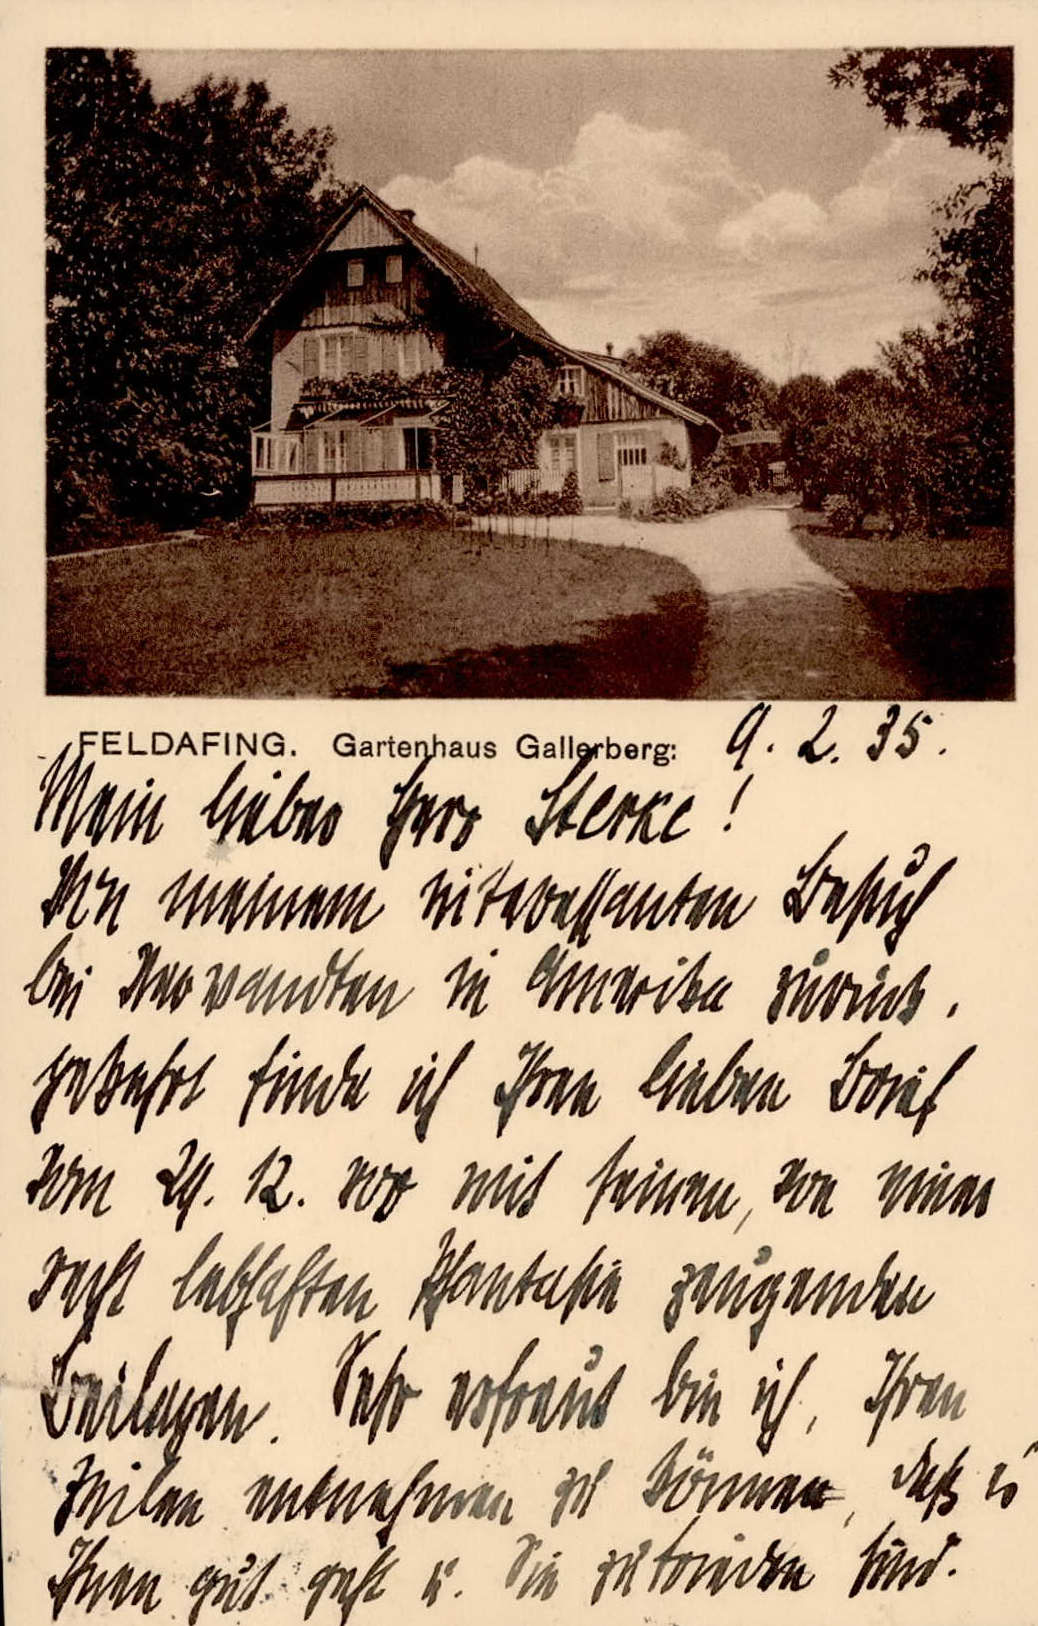 FELDAFING. Gartenhaus Gallerberg: 9. 2. 35.
Mein lieber Herr Sterke!
Von meinem interessanten Besuch
bei Verwandten in Amerika zurück.
gekehrt finde ich Ihren lieben Brief
vom 29. 12. vor mit seinen, von einer
recht lebhaften Phantasie zeugenden
Beilagen. Sehr erfreut bin ich, Ihren
Zeilen entnehmen zu können, daß es
Ihnen gut geht u. Sie zufrieden sind.